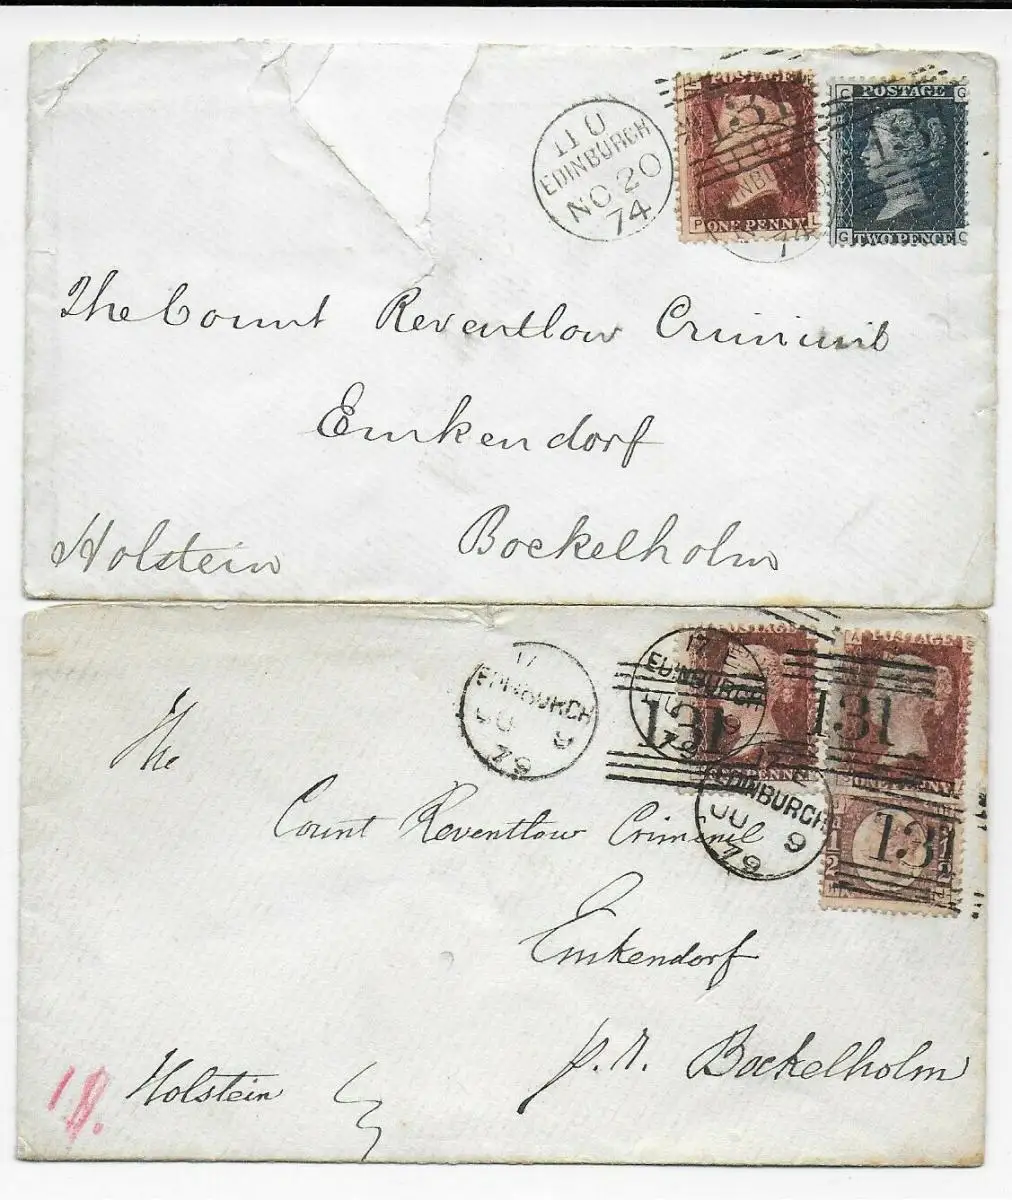 11 U
EDINBURGH
NO 20
74
POSTAGE
131
ONE PENNY
P L
C G
POSTAGE
131
G TWO PENCE C
The Count Reventlow Criminil
Emkendorf
Holstein Bockelholm
17
EDINBURGH
JU 9
79
17 E
EDINBURGH
JU 9
79
131
PENNY
131
ONE PENNY
17 E
EDINBURGH
JU 9
79
131
The
Count Reventlow Criminil
Emkendorf
p. r. Bockelholm
Holstein